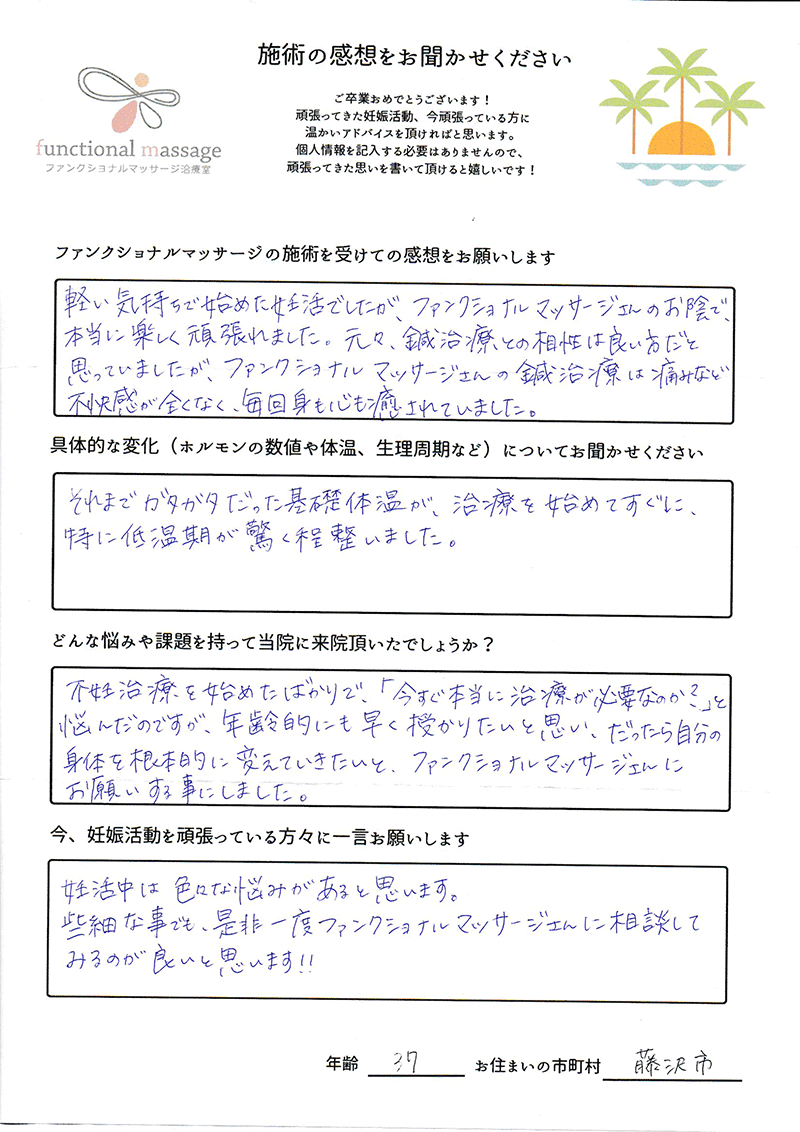 施術の感想をお聞かせください
functional massage
ファンクショナルマッサージ治療室
ご卒業おめでとうございます！
頑張ってきた妊娠活動、今頑張っている方に
温かいアドバイスを頂ければと思います。
個人情報を記入する必要はありませんので、
頑張ってきた思いを書いて頂けると嬉しいです！
ファンクショナルマッサージの施術を受けての感想をお願いします
軽い気持ちで始めた妊活でしたが、ファンクショナルマッサージさんのお陰で、
本当に楽しく頑張れました。元々、鍼治療との相性は良い方だと
思っていましたが、ファンクショナルマッサージさんの鍼治療は痛みなど
不快感が全くなく、毎回身も心も癒されていました。
具体的な変化（ホルモンの数値や体温、生理周期など）についてお聞かせください
それまでガタガタだった基礎体温が、治療を始めてすぐに、
特に低温期が驚く程整いました。
どんな悩みや課題を持って当院に来院頂いたでしょうか？
不妊治療を始めたばかりで、「今すぐ本当に治療が必要なのか？」と
悩んだのですが、年齢的にも早く授かりたいと思い、だったら自分の
身体を根本的に変えていきたいと、ファンクショナルマッサージさんに
お願いする事にしました。
今、妊娠活動を頑張っている方々に一言お願いします
妊活中は色々な悩みがあると思います。
些細な事でも、是非一度ファンクショナルマッサージさんに相談して
みるのが良いと思います!!
年齢 37 お住まいの市町村 藤沢市